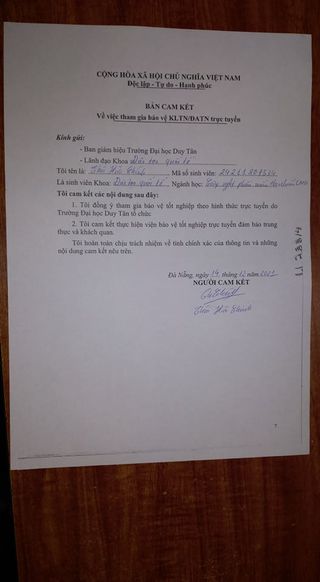 CỘNG HÒA XÃ HỘI CHỦ NGHĨA VIỆT NAM
Độc lập - Tự do - Hạnh phúc
BẢN CAM KẾT
Về việc tham gia bảo vệ KLTN/DATN trực tuyến
Kính gửi:
- Ban giám hiệu Trường Đại học Duy Tân
- Lãnh đạo Khoa Đào tạo quốc tế
Tôi tên là: Hữu Thành Mã số sinh viên:
Là sinh viên Khoa: Đào tạo quốc tế Ngành học: Công nghệ phần mềm
Tôi cam kết các nội dung sau đây:
1. Tôi đồng ý tham gia bảo vệ tốt nghiệp theo hình thức trực tuyến do
Trường Đại học Duy Tân tổ chức
2. Tôi cam kết thực hiện bảo vệ tốt nghiệp trực tuyến đảm bảo trung
thực và khách quan.
Tôi hoàn toàn chịu trách nhiệm về tính chính xác của thông tin và những
nội dung cam kết nêu trên.
Đà Nẵng, ngày 14 tháng 12 năm 2021
NGƯỜI CAM KẾT
Hữu Thành